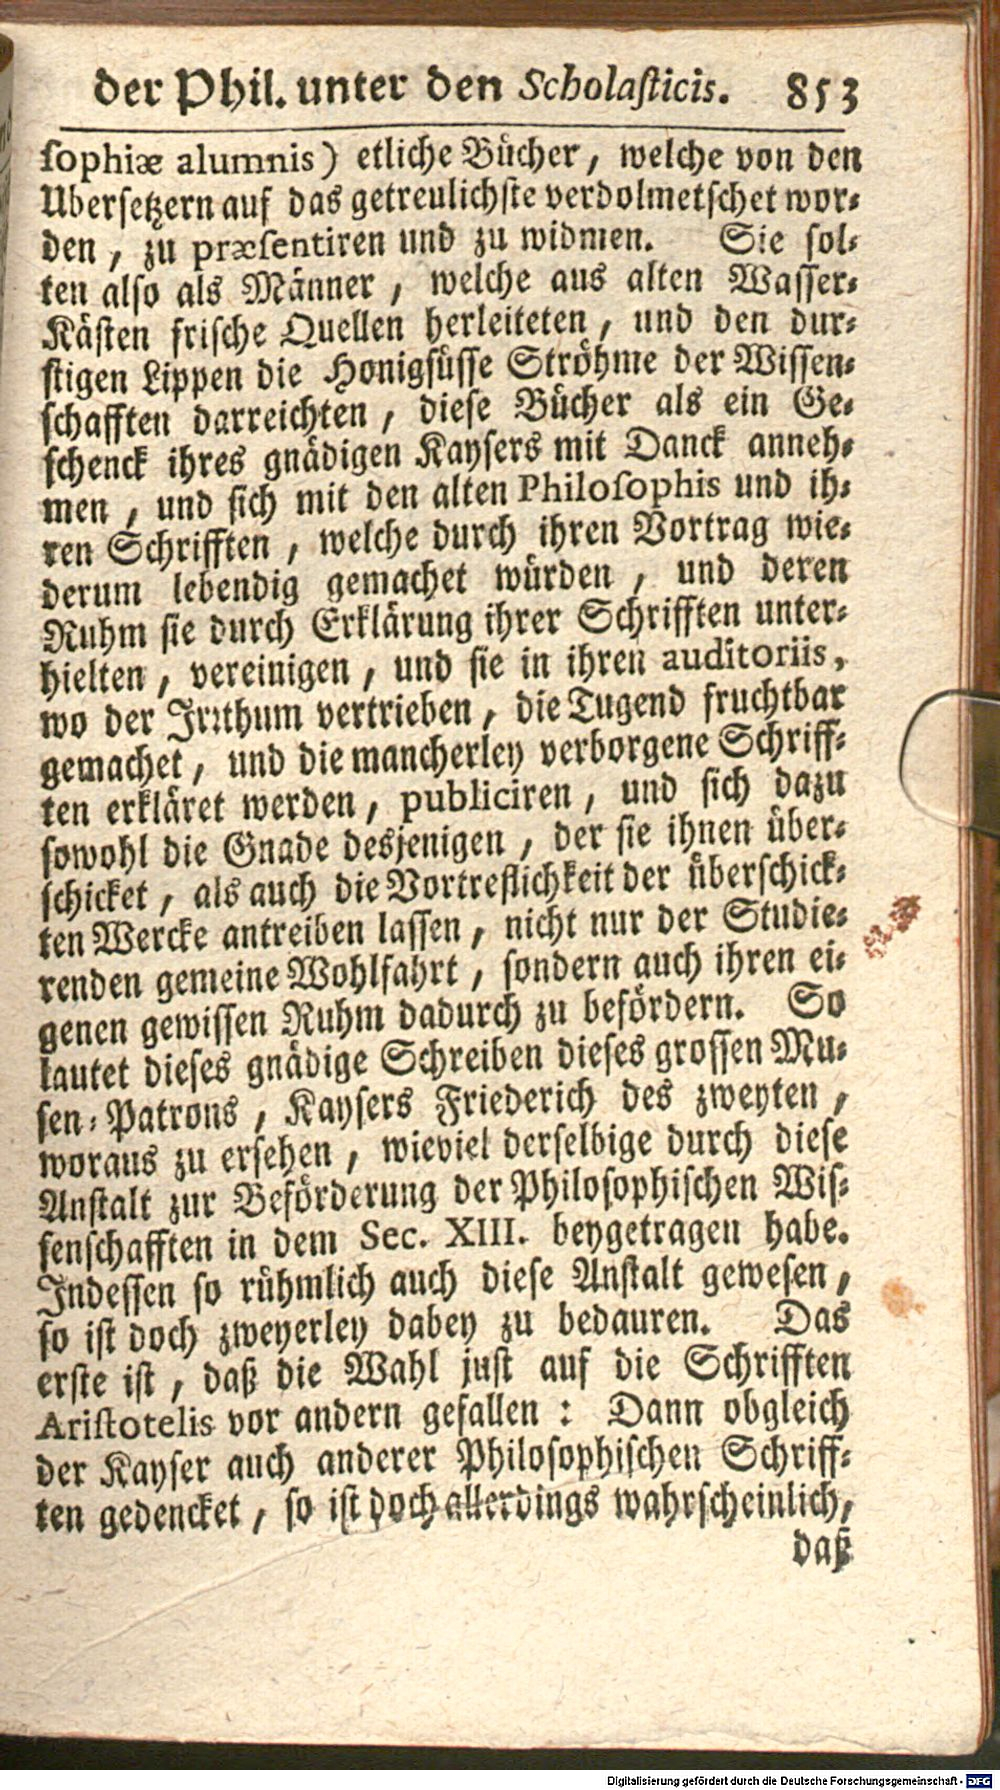 der Phil. unter den Scholasticis. 853
sophiæ alumnis) etliche Bücher, welche von den
Ubersetzern auf das getreulichste verdolmetschet wor-
den, zu præsentiren und zu widmen. Sie sol-
ten also als Männer, welche aus alten Wasser-
Kästen frische Quellen herleiteten, und den dur-
stigen Lippen die Honigsüsse Ströhme der Wissen-
schafften darreichten, diese Bücher als ein Ge-
schenck ihres gnädigen Kaysers mit Danck anneh-
men, und sich mit den alten Philosophis und ih-
ren Schrifften, welche durch ihren Vortrag wie-
derum lebendig gemachet würden, und deren
Ruhm sie durch Erklärung ihrer Schrifften unter-
hielten, vereinigen, und sie in ihren auditoriis,
wo der Irrthum vertrieben, die Tugend fruchtbar
gemachet, und die mancherley verborgene Schriff-
ten erkläret werden, publiciren, und sich dazu
sowohl die Gnade desjenigen, der sie ihnen über-
schicket, als auch die Vortreflichkeit der überschick-
ten Wercke antreiben lassen, nicht nur der Studie-
renden gemeine Wohlfahrt, sondern auch ihren ei-
genen gewissen Ruhm dadurch zu befördern. So
lautet dieses gnädige Schreiben dieses grossen Mu-
sen-Patrons, Kaysers Friederich des zweyten,
woraus zu ersehen, wieviel derselbige durch diese
Anstalt zur Beförderung der Philosophischen Wis-
senschafften in dem Sec. XIII. beygetragen habe.
Indessen so rühmlich auch diese Anstalt gewesen,
so ist doch zweyerley dabey zu bedauren. Das
erste ist, daß die Wahl just auf die Schrifften
Aristotelis vor andern gefallen: Dann obgleich
der Kayser auch anderer Philosophischen Schriff-
ten gedencket, so ist doch allerdings wahrscheinlich,
daß
Digitalisierung gefördert durch die Deutsche Forschungsgemeinschaft - DFG